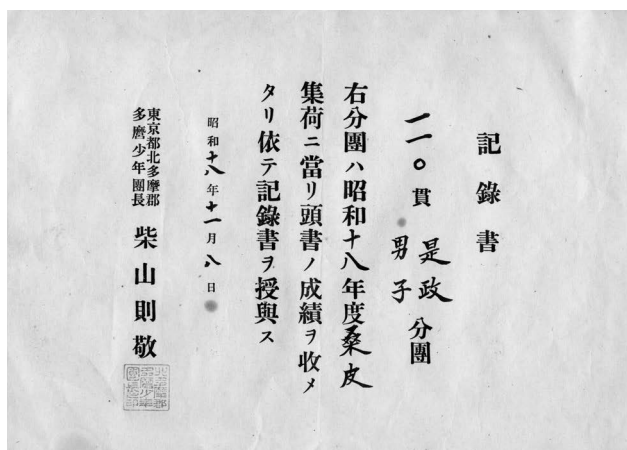 記錄書
一一〇貫
是政男子分團
右分團ハ昭和十八年度桑皮
集荷ニ當リ頭書ノ成績ヲ收メ
タリ依テ記錄書ヲ授與ス
昭和十八年十一月八日
東京都北多摩郡
多磨少年團長
柴山則敬